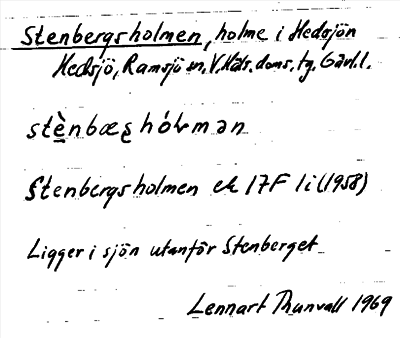 Stenbergsholmen, holme i Hedsjön
Hedsjö, Ramsjö sn, V. Häls. doms. tg, Gävl. l.
stènbæʂhól̵mən
Stenbergsholmen ek 17F 1i (1958)
Ligger i sjön utanför Stenberget
Lennart Thunvall 1969